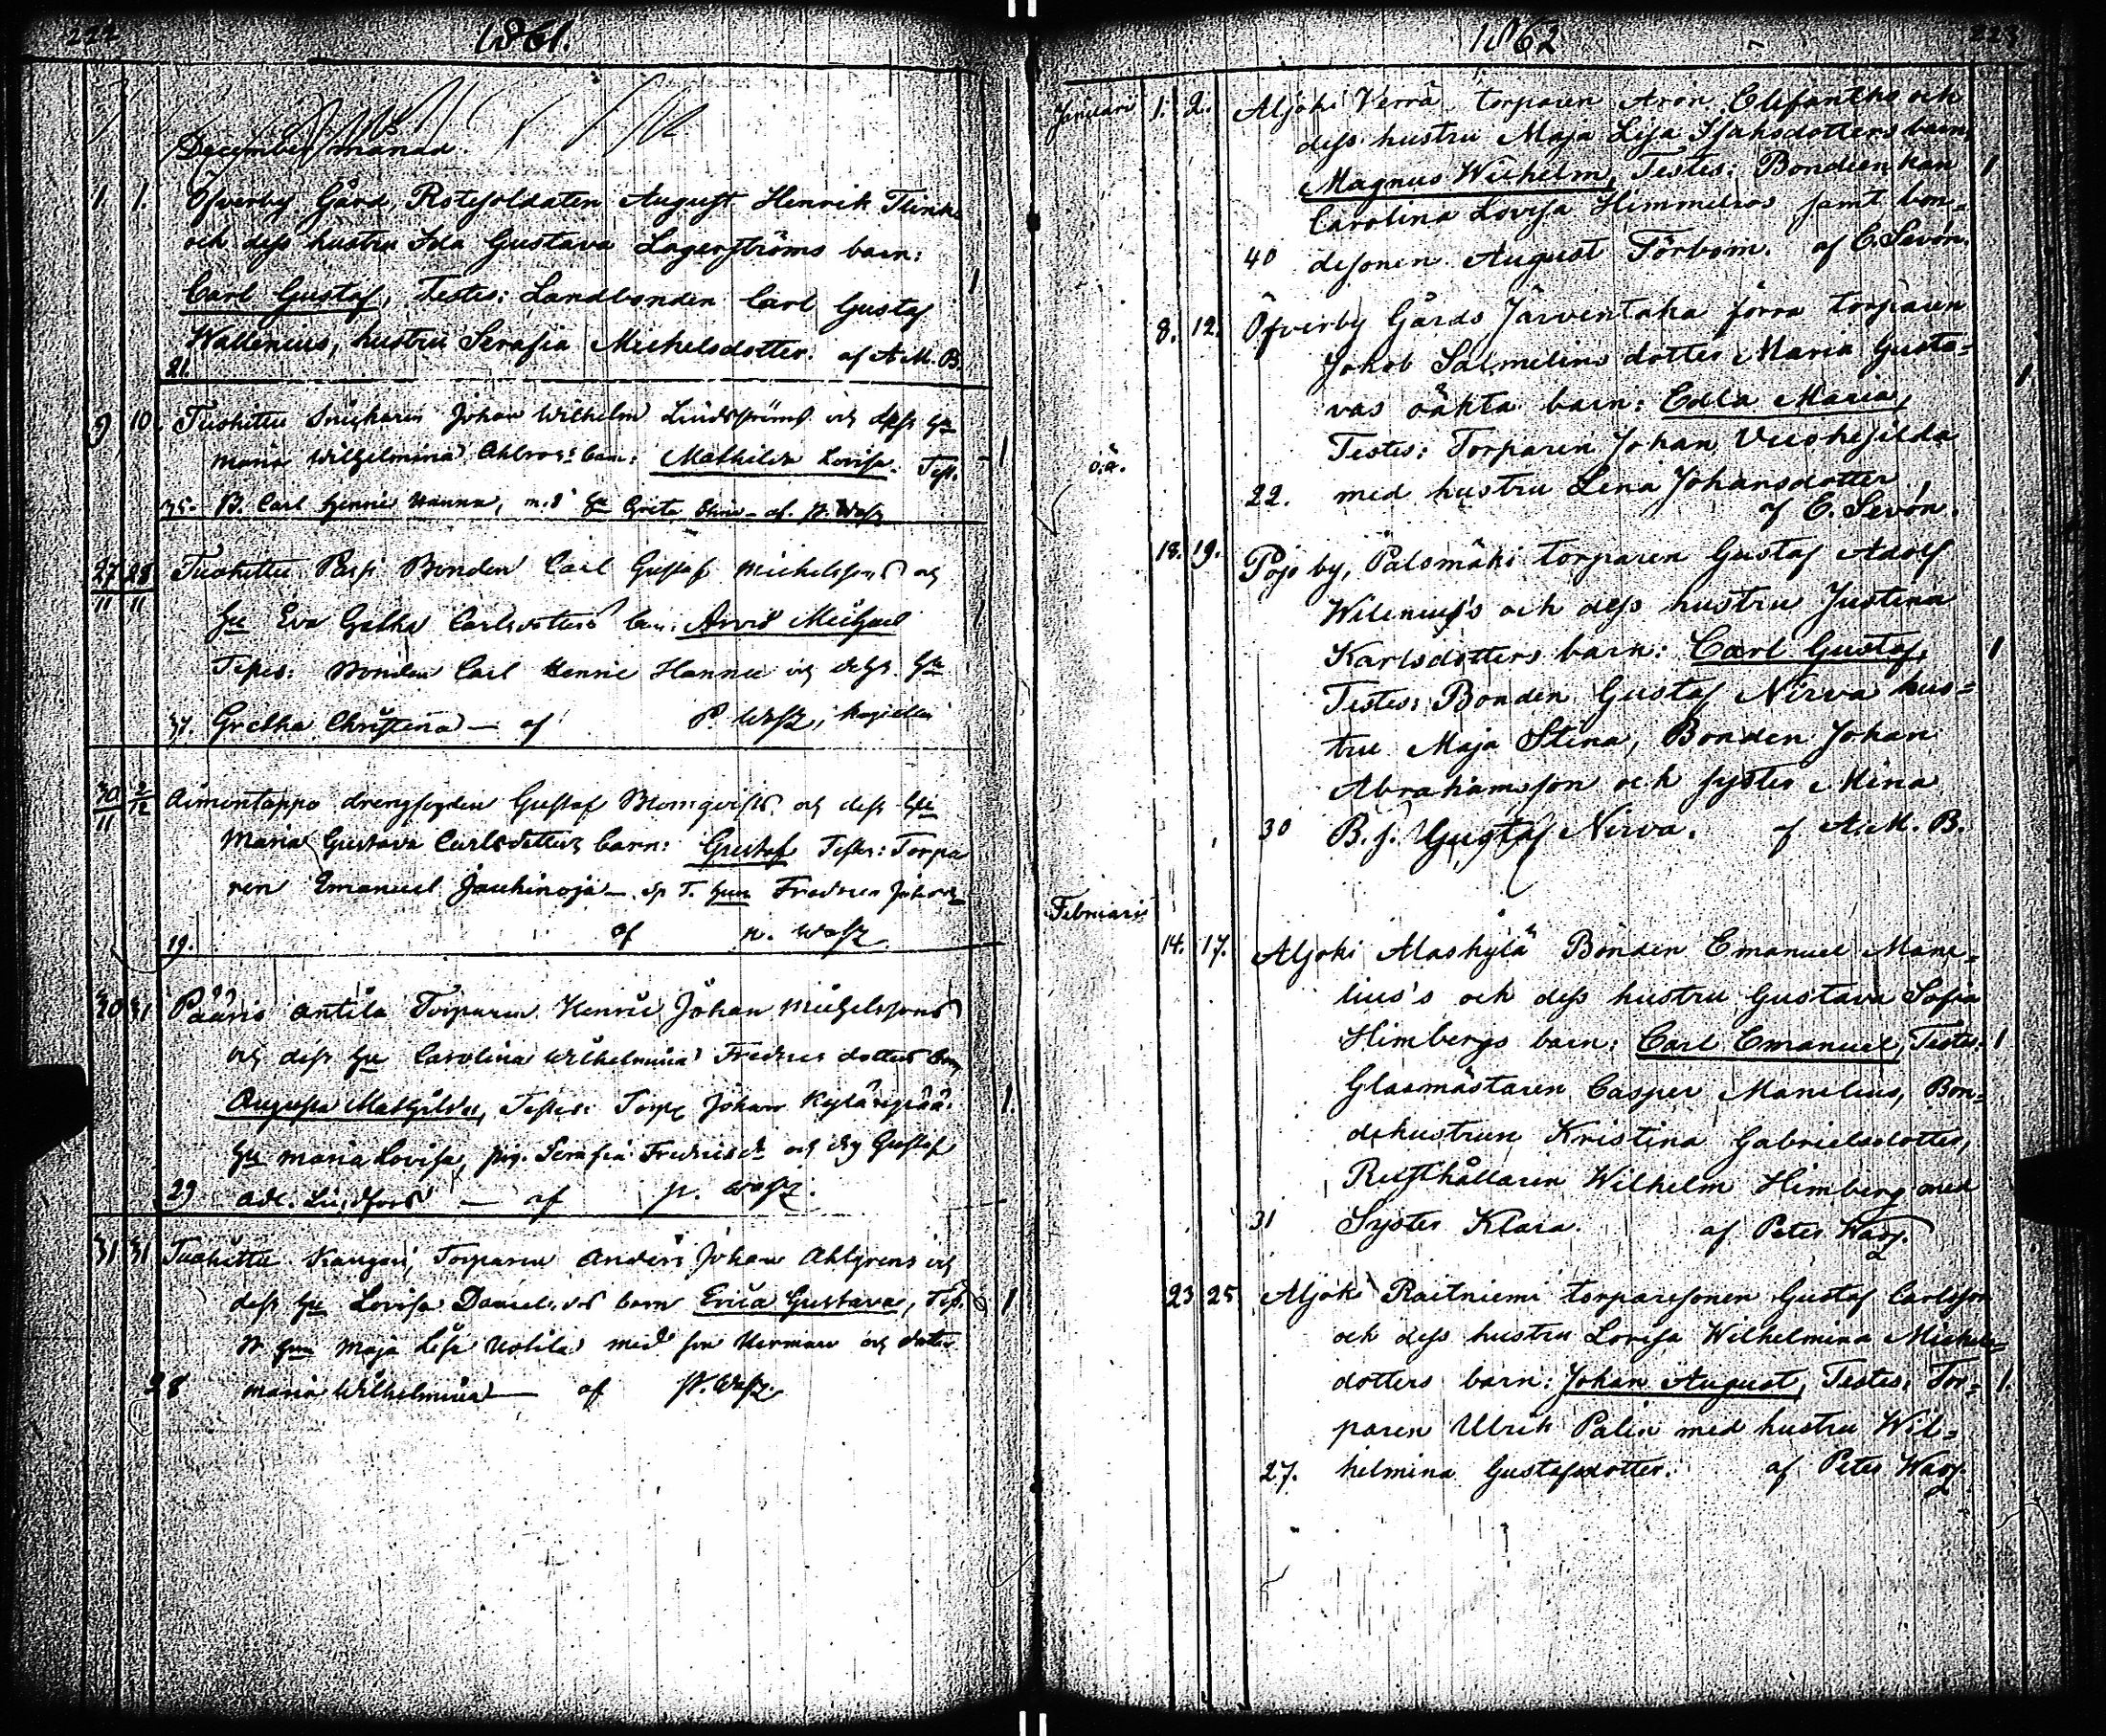 222
1861.
December månad.
1. 1. Öfverby Gård, Rotesoldaten August Henrik Flinks
och dess hustru Ida Gustava Lagerströms barn:
Carl Gustaf, Testes: Landbonden Carl Gustaf 1
Wallenius, hustru Serafia Michelsdotter. af A.M.B.
21.
9 10. Johan Wilhelm Lindströms och dess Hu
Maria Wilhelmina barn: Mathilda Lovisa. Test. 1
35. B. Carl Henric Hannu, med Hu Greta af P. Wasz
27/11 28/11 Bonden Carl Gustaf Michelssons och
Hu Eva Carlsdotters barn: Arvid Michael 1
Testes: Bonden Carl Henric Hannu och dess Hu
Gretha Christina — af P. Wasz,
30/11 2/12 Gustaf Blomqvists och dess Hu
Maria Gustava Carlsdotters barn: Gustaf Testes: Torpa
ren Emanuel
19. af P. Wasz
30 31 Pääris Antila Torparen Henric Johan Michelssons
och dess Hu Carolina Wilhelmina Fredrics dotters barn
Augusta Mathilda, Testes: Torp Johan 1.
Hu Maria Lovisa, pig. Serafia och Gustaf
29 Adl. Lindfors — af P. Wasz.
31 31 Torparen Anders Johan Ahlgrens och
dess Hu Lovisa barn Erica Gustava, Tes. 1
Maja Lisa med son Herman och dotter
28 Maria Wilhelmina — af P. Wasz.
1862
223
Januari 1. 2. Aljoki Verrä torparen Aron Clefanths och
dess hustru Maja Lisa barn,
Magnus Wilhelm, Testes: 1
Carolina Lovisa Himmelros samt bon-
40 desonen August Törbom. af C. Sevón.
8. 12. Öfverby Gårds Järventaka förra torparen
Jakob Salmelins dotter Maria Gusta-
vas oäkta barn: Edla Maria, 1.
o.ä. Testes: Torparen Johan
22. med hustru Lena Johansdotter,
af C. Sevón.
18. 19. Pojo by, Palsmäki torparen Gustaf Adolf
Wilenius's och dess hustru Justina
Karlsdotters barn: Carl Gustaf, 1
Testes: Bonden Gustaf Nirva hus-
tru Maja Stina, Bonden Johan
Abrahamsson och syster Mina
30 B. s. Gustaf Nirva. af A.M.B.
Februari
14. 17. Aljoki Alaskylä Bonden Emanuel Mane-
lius's och dess hustru Gustava Sofia
Himbergs barn: Carl Emanuel, Testes: 1
Glasmästaren Casper Manelius, Bon-
dehustrun Kristina Gabrielsdotter,
Rusthållaren Wilhelm Himberg med
31 Syster Klara. af Peter Wasz.
23 25 Aljoki Raitniemi torparesonen Gustaf Carlsson
och dess hustru Lovisa Wilhelmina Michels-
dotters barn: Johan August, Testes: Tor- 1.
paren Ulrik Palin med hustru Wil-
27. helmina Gustafsdotter. af Peter Wasz.